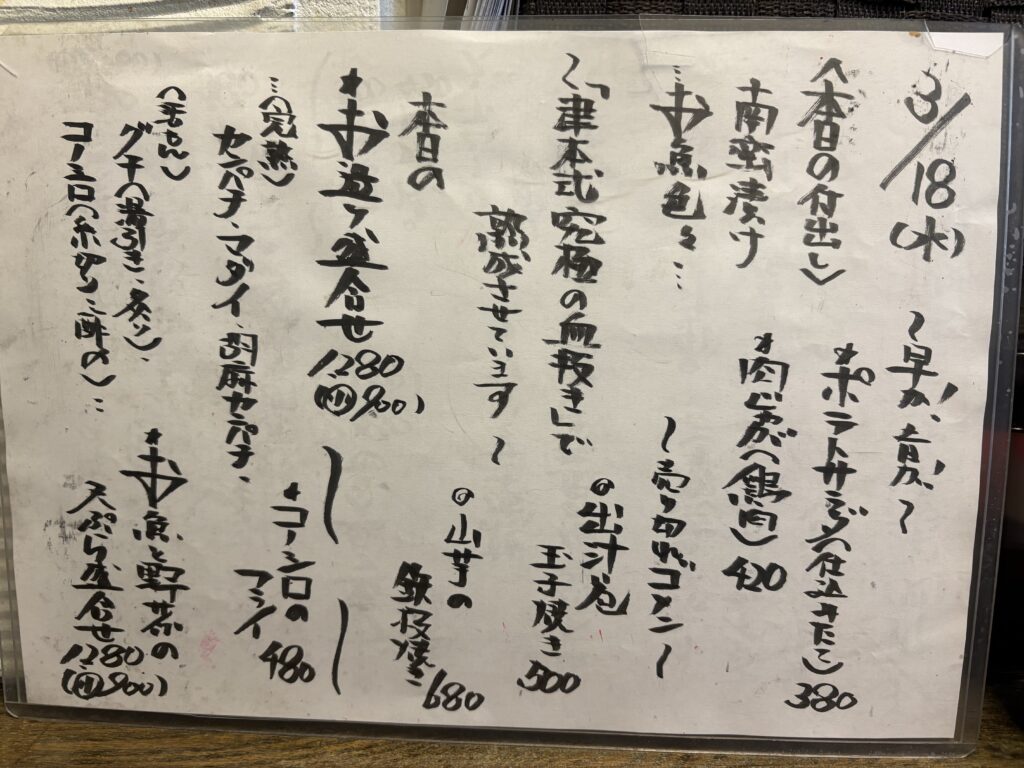 3/18(水)
〈本日の付出し〉
南蛮漬け
…お魚色々…
〜「津本式 究極の血抜き」で
熟成させています〜
本日の
*お造り盛合せ
1,280
(小900)
…〈完熟〉
カンパチ、マダイ、胡麻カンパチ、
グチ〈湯引き・炙り〉、
コノシロ〈糸切り・酢〆〉…
〜早が、
*ポテトサラダ〈仕込みたこ〉
380
*肉じゃが〈鶏肉〉
420
〜売り切れゴメン〜
◎出汁巻
玉子焼き
500
◎山芋の
鉄板焼き
680
*コノシロの
フライ
480
*お魚と野菜の
天ぷら盛合せ
1,280
(小900)